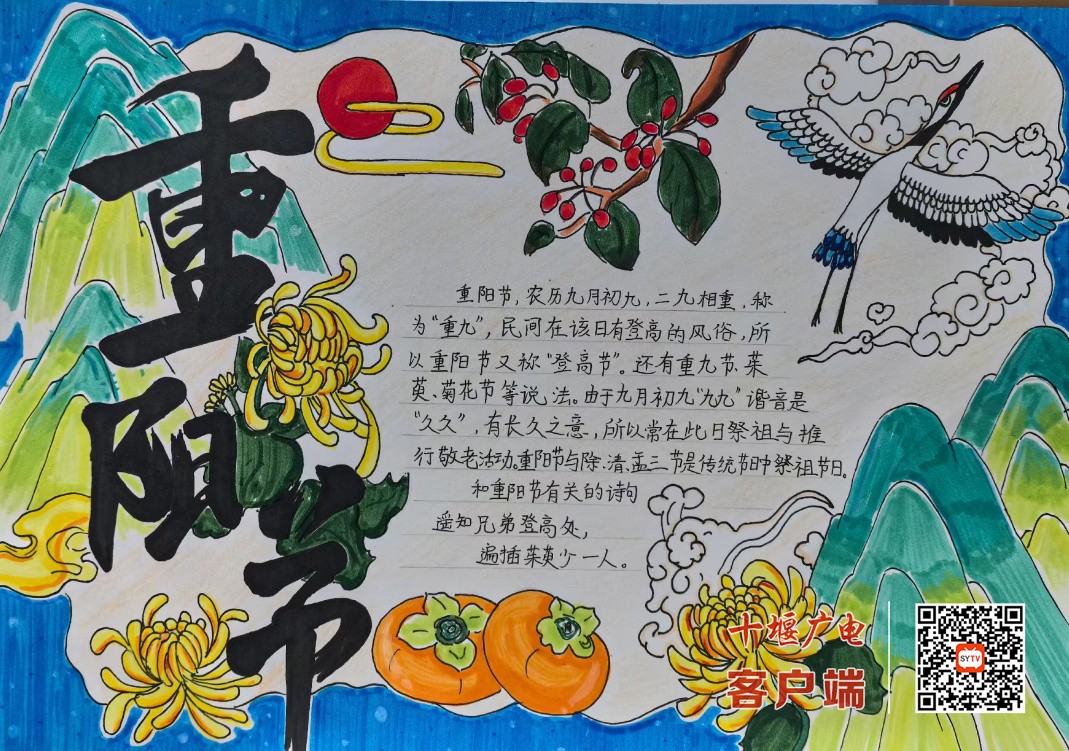 重阳节
重阳节，农历九月初九，二九相重，称
为“重九”，民间在该日有登高的风俗，所
以重阳节又称“登高节”。还有重九节、茱
萸、菊花节等说法。由于九月初九“九九”谐音是
“久久”，有长久之意，所以常在此日祭祖与推
行敬老活动。重阳节与除、清、盂三节是传统节日中祭祖节日。
和重阳节有关的诗句
遥知兄弟登高处，
遍插茱萸少一人。
十堰广电
客户端
SYTV